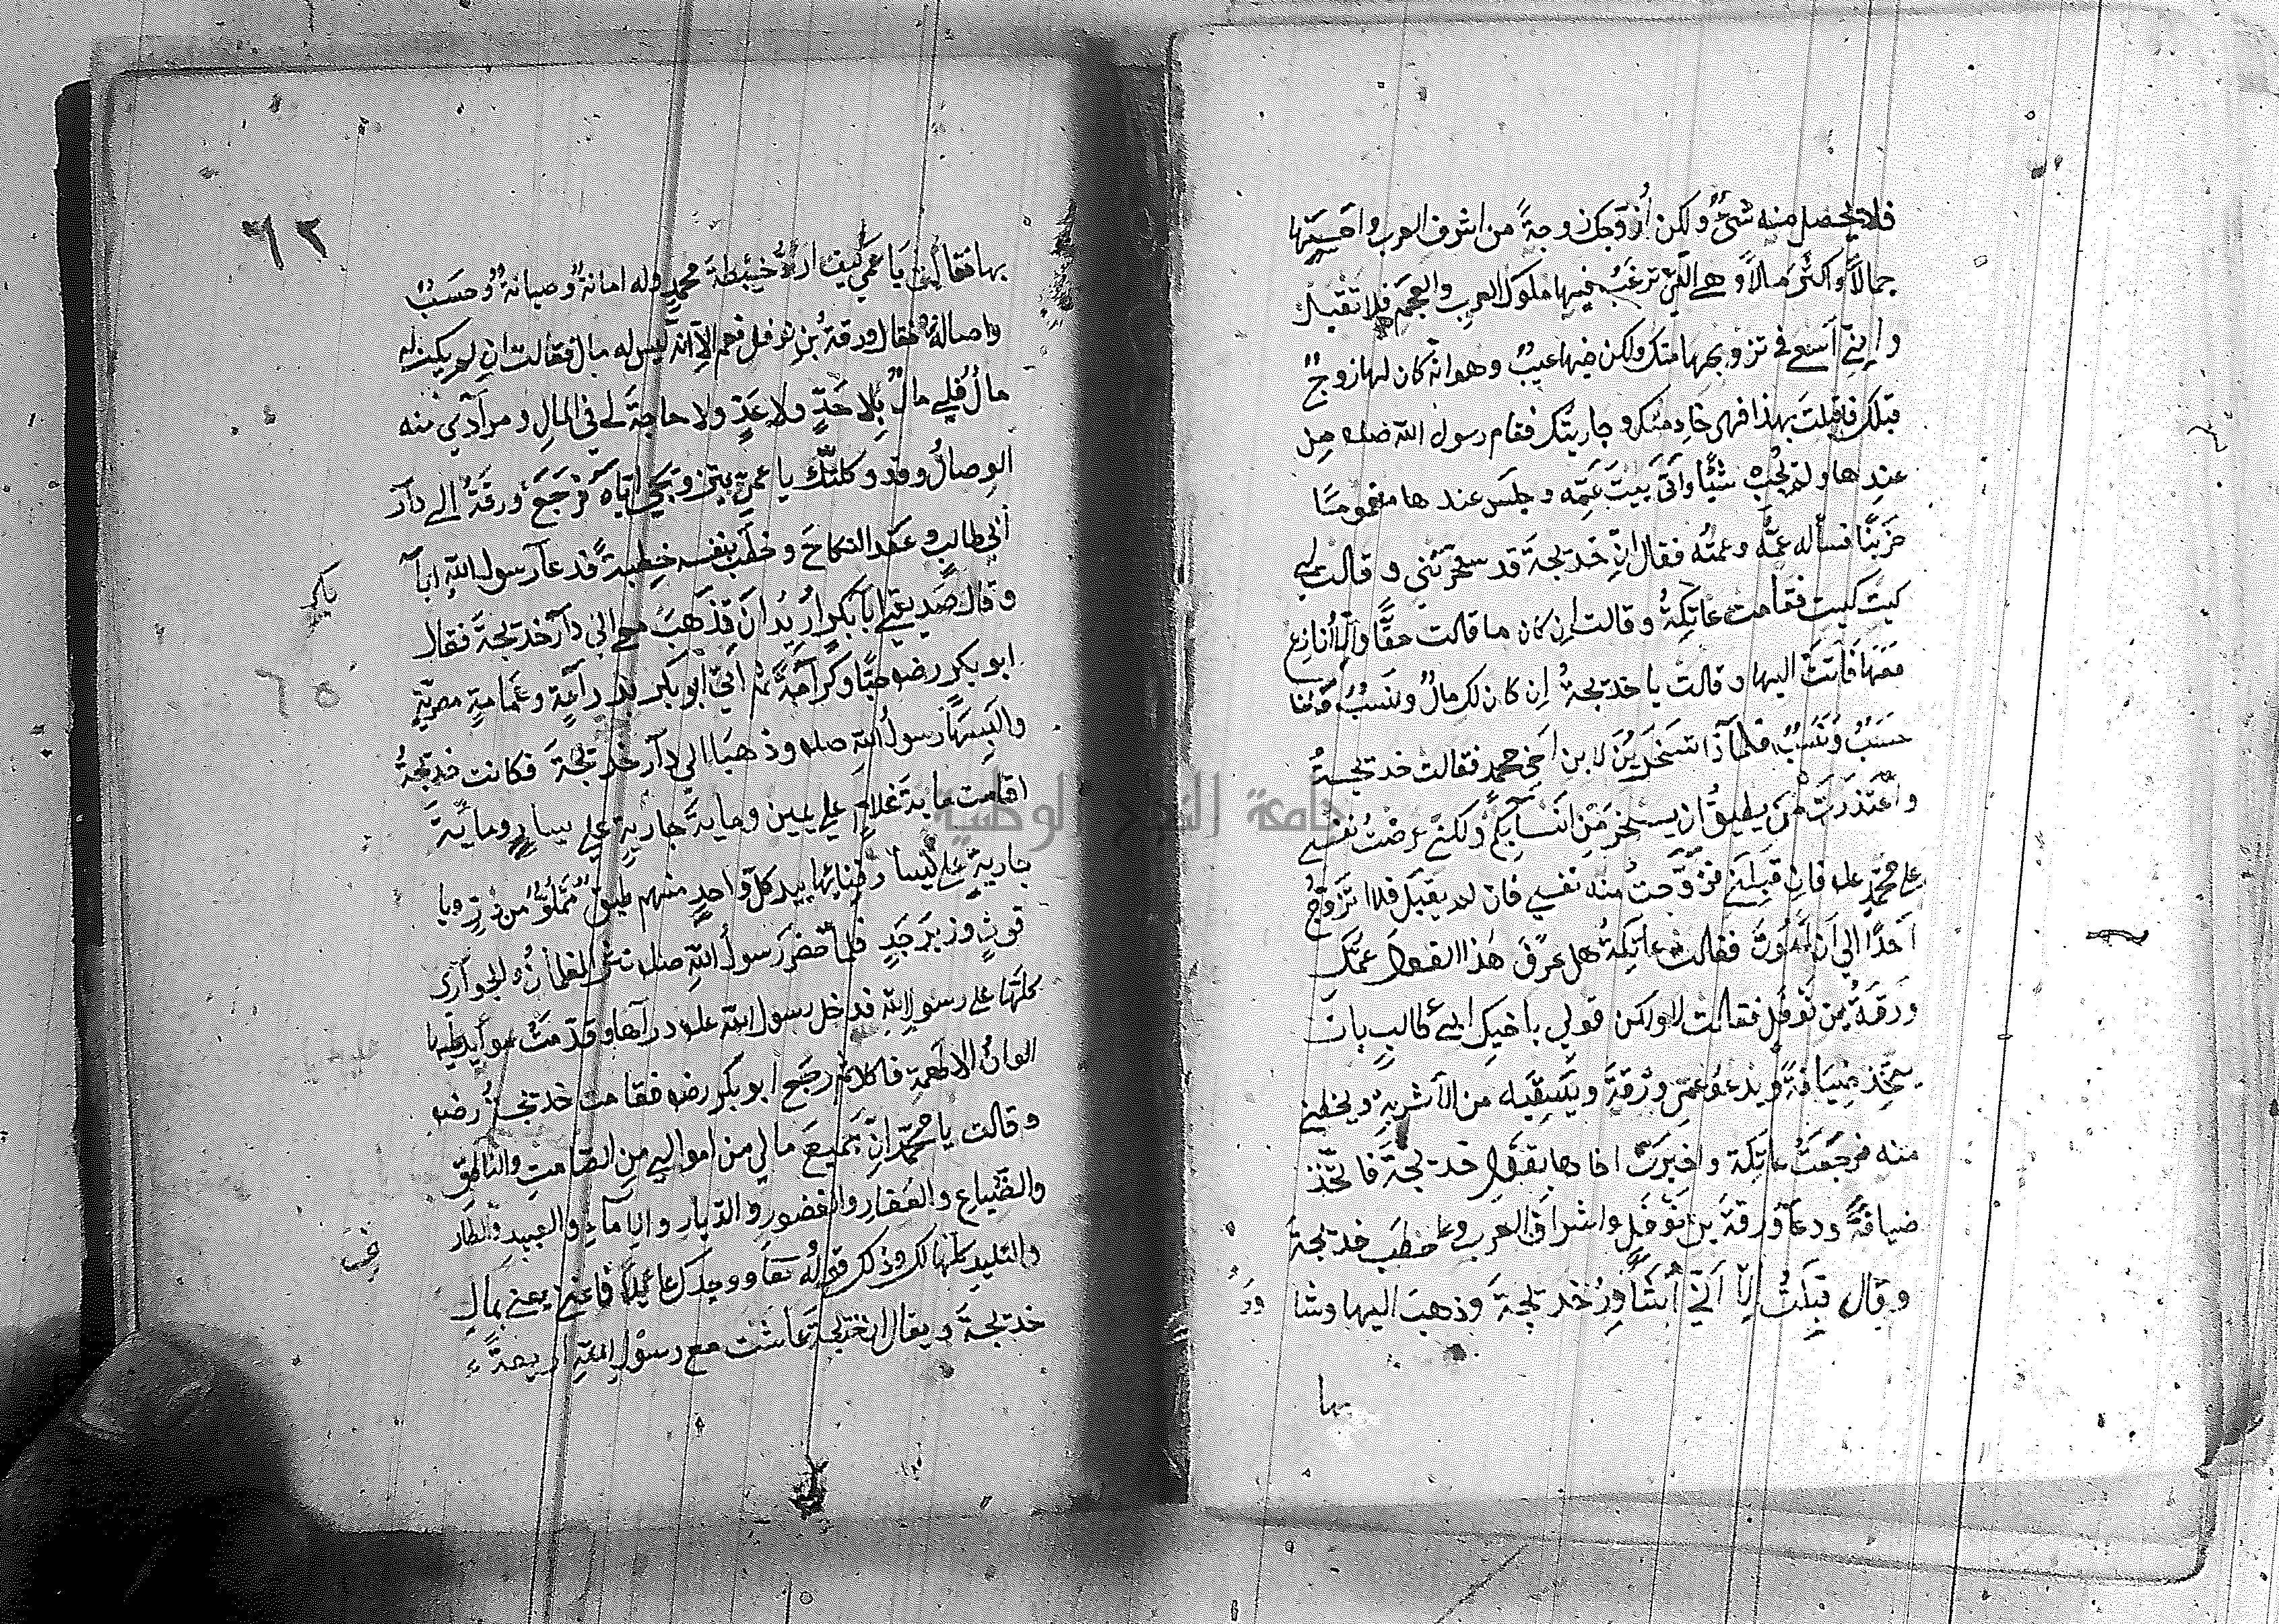 فلا يحصل منه شئ ولكن أزوجك زوجة من اشرف العرب واحسنها
جمالا واكثر مالا وهي التي ترغب فيها ملوك العرب والعجم فلا تقبل
واني أسعى في تزويجها منك ولكن فيها عيب وهو انه كان لها زوج
قبلك فان قبلت بهذا فهي خادمتك وجاريتك فقام رسول الله صلعم من
عندها ولم يجب شيئا وأتى بيت عمه وجلس عندها مغموما
حزينا فسأله عمه وعمته فقال ان خديجة قد سخرتني وقالت لي
كيت كيت فقامت عاتكة وقالت ان كان ما قالت حقا والا أنازع
معها فأتت اليها وقالت يا خديجة ان كان لك مال ونسب فلنا
حسب ونسب فلماذا تسخرين لابن اخي محمد فقالت خديجة
واعتذرت من يطيق ان يسخر من انسابكم ولكني عرضت نفسي
على محمد عليه فان قبلني زوجت منه نفسي فان لم يقبل فلا اتزوج
أحدا الى ان أموت فقالت عاتكة هل عرف هذا القول عمك
ورقة بن نوفل فقالت لا ولكن قولي باخيك ابي طالب بان
يتخذ ضيافة ويدعو عمي ورقة ويسقيه من الأشربة ويخطبني
منه فرجعت عاتكة واخبرت اخاها بقول خديجة فاتخذ
ضيافة ودعا ورقة بن نوفل واشراف العرب وخطب خديجة
وقال قبلت الا اني أشاور خديجة وذهب اليها وشاور
بها
٦٢
بها فقالت يا عمي كيف ارد خطبة محمد وله امانة وصيانة وحسب
واصالة فقال ورقة بن نوفل نعم الا انه ليس له مال فقالت ان لم يكن له
مال فلي مال بلا حد ولا عد ولا حاجة لي في المال ومرادي منه
الوصال وقد وكلتك يا عمي بتزويجي اياه فرجع ورقة الى دار
أبي طالب وعقد النكاح وخطب بنفسه خطبة فدعا رسول الله ابا
بكر
وقال صديقي ابا بكر اريد ان تذهب معي الى دار خديجة فقال
ابو بكر رضه حبا وكرامة ثم أتى ابو بكر بدراعة وعمامة مصرية
والبسها رسول الله صلعم وذهبا الى دار خديجة فكانت خديجة
اقامت ماية غلام على يمين وماية جارية على يسار وماية
جارية على يسار بيد كل واحد منهم طبق مملو من در ويا
قوت وزبرجد فلما حضر رسول الله صلعم نثر الغلمان والجواري
كلها على رسول الله فدخل رسول الله عليه دارها وقدمت موايد عليها
الوان الاطعمة فاكلا ثم رجع ابو بكر رضه فقامت خديجة رضه
وقالت يا محمد ان جميع مالي من اموالي من الصامت والناطق
والضياع والعقار والقصور والديار والاماء والعبيد والطارف
والتليد كلها لك وذلك قوله تعا ووجدك عائلا فاغنى يعني بمال
خديجة ويقال ان خديجة عاشت مع رسول الله اربعة